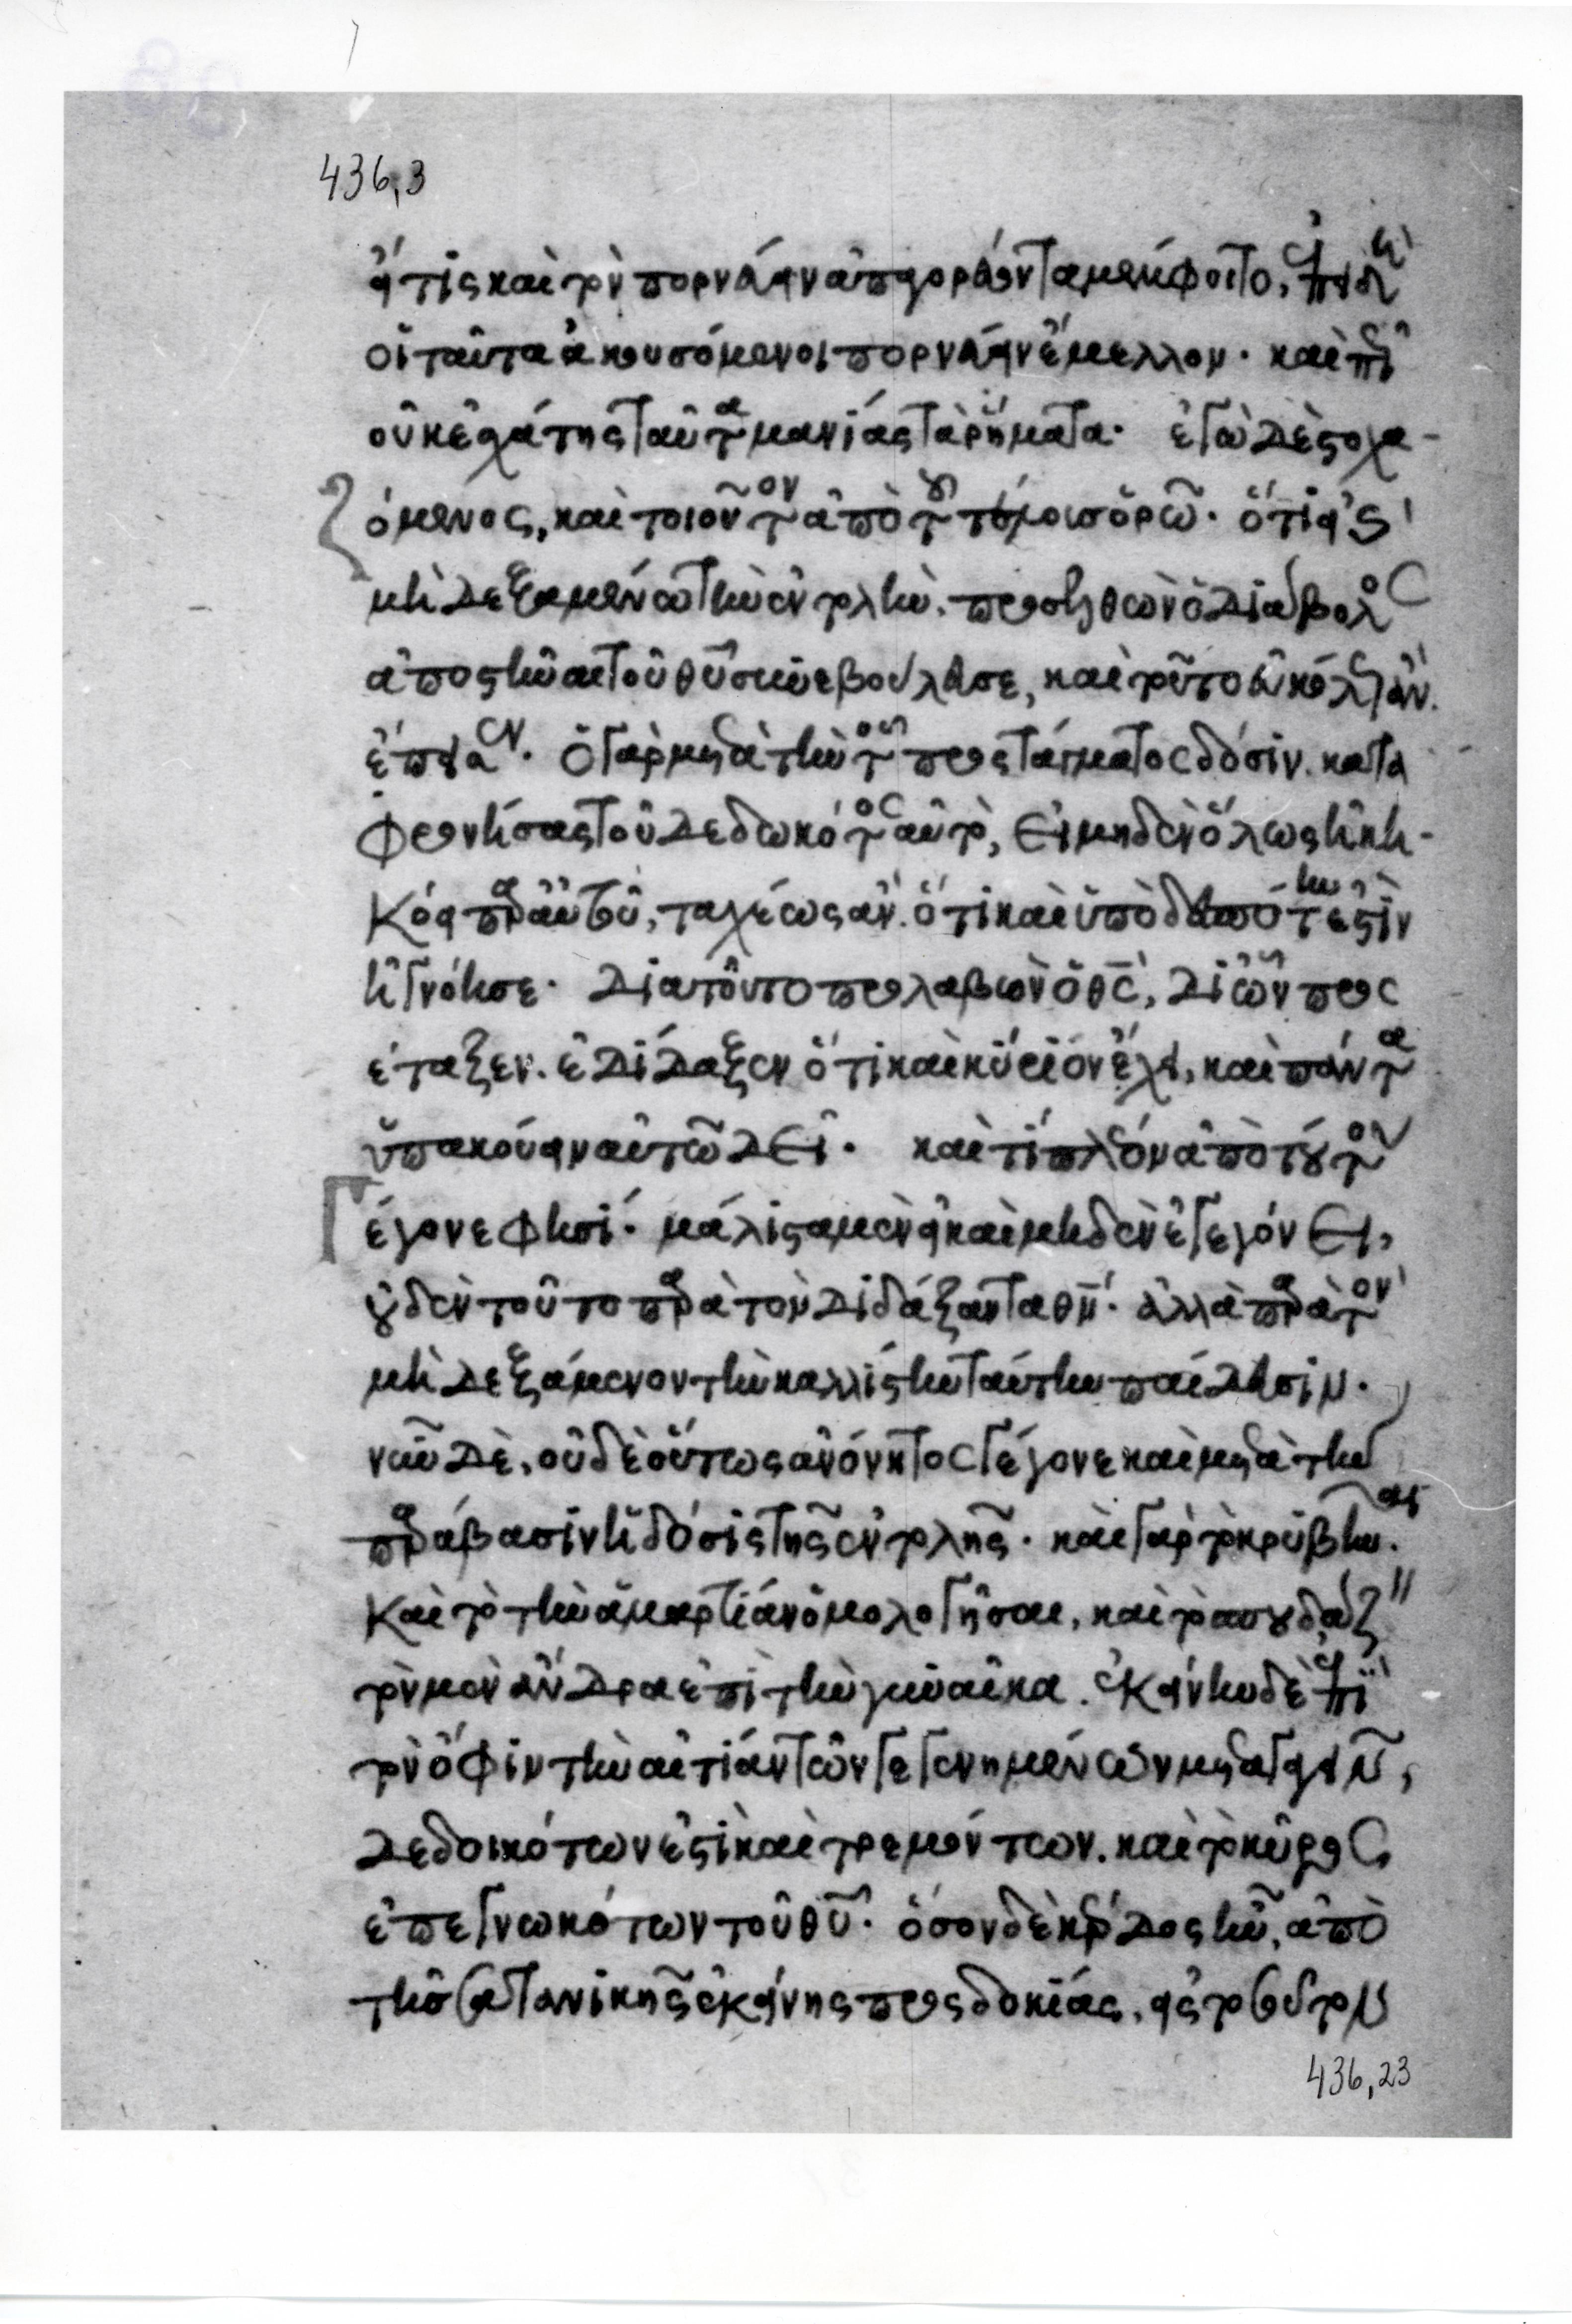 436,3
εἴ τις καὶ τὸν πορνεύειν ἀπαγορεύοντα μέμφοιτο, ἐπειδὴ
οἱ ταῦτα ἀκουσόμενοι πορνεύειν ἔμελλον. καὶ
οὐκ ἐσχάτης ταῦτα μανίας τὰ ῥήματα. ἐγὼ δὲ στοχα-
όμενος, καὶ τοιοῦτον ἀπὸ τούτου ὁρῶ. ὅτι εἰ
μὴ δεξαμένω τὴν ἐντολὴν. προσελθὼν ὁ διάβολος
ἀποστῆναι τοῦ θυ συνεβούλευσε, καὶ τοῦτο εὐκόλως ἂν
ἔπεισεν. ὁ γὰρ μετὰ τὴν τοῦ προστάγματος δόσιν. κατα
φρονήσας τοῦ δεδωκότος αὐτὸ, εἰ μηδὲν ὅλως ἠκη-
κόει παρ' αὐτοῦ, ταχέως ἂν. ὅτι καὶ ὑπὸ δεσπότην ἐστὶν
ἠγνόησε. διατοῦτο προλαβὼν ὁ θς, δι' ὧν προς
έταξεν. ἐδίδαξεν ὅτι καὶ κύριον ἔχει, καὶ πάντα
ὑπακούειν αὐτῶ δεῖ. καὶ τί πλέον ἀπὸ τούτου
γέγονε φησί. μάλιστα μὲν εἰ καὶ μηδὲν ἐγεγόνει,
οὐδὲν τοῦτο παρὰ τὸν διδάξαντα θν. ἀλλὰ παρὰ τὸν
μὴ δεξάμενον τὴν καλλίστην ταύτην παίδευσιν.
νῦν δὲ, οὐδὲ οὕτως ἀνόνητος γέγονε καὶ μετὰ τὴν
παράβασιν ἡ δόσις τῆς ἐντολῆς. καὶ γὰρ τὸ κρύβην.
καὶ τὸ τὴν ἁμαρτίαν ὁμολογῆσαι, καὶ τὸ σπουδάζειν
τὸν μὲν ἄνδρα ἐπὶ τὴν γυναῖκα. ἐκείνην δὲ ἐπὶ
τὸν ὄφιν τὴν αἰτίαν τῶν γεγενημένων μεταγαγεῖν,
δεδοικότων ἐστὶ καὶ τρεμόντων. καὶ τὸ κῦρος
ἐπεγνωκότων τοῦ θυ. ὅσον δὲ κέρδος ἦν, ἀπὸ
τῆς σατανικῆς ἐκείνης προσδοκίας, εἰς τοῦτον
436,23